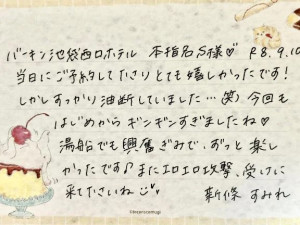 バーキン池袋西口ホテル 本指名S様♡ R8.9.10
当日にご予約して下さりとても嬉しかったです！
しかしすっかり油断していました…(笑) 今回も
はじめからギンギンすぎましたね♡
湯船でも興奮ぎみで、ずっと楽し
かったです♪またエロエロ攻撃、受けに
来て下さいね
新條 すみれ